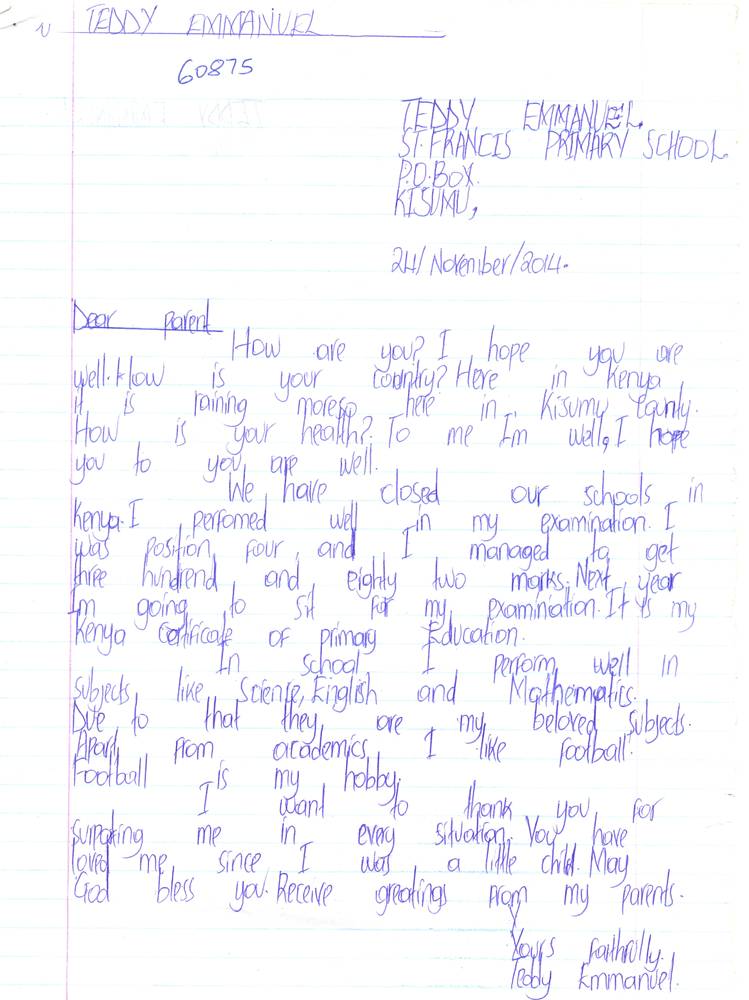 TEDDY EMMANUEL
60875
TEDDY EMMANUEL.
ST. FRANCIS PRIMARY SCHOOL.
P.O.BOX.
KISUMU,
24/November/2014.
Dear parent
How are you? I hope you are
well. How is your country? Here in Kenya
it is raining moreso here in Kisumu County.
How is your health? To me Im well, I hope
you to you are well.
We have closed our schools in
Kenya. I perfomed well in my examination. I
was position four, and I managed to get
three hundrend, and eighty two marks. Next year
Im going to sit for my examiniation. It is my
Kenya Certificate of primary Education.
In school I perform well in
subjects like Science, English and Mathematics.
Due to that they are my beloved subjects.
Apart from academics, I like football.
Football is my hobby.
I want to thank you for
surpoting me in every situation. You have
loved me since I was a little child. May
God bless you. Receive greatings from my parents.
Yours faithfully.
Teddy Emmanuel.